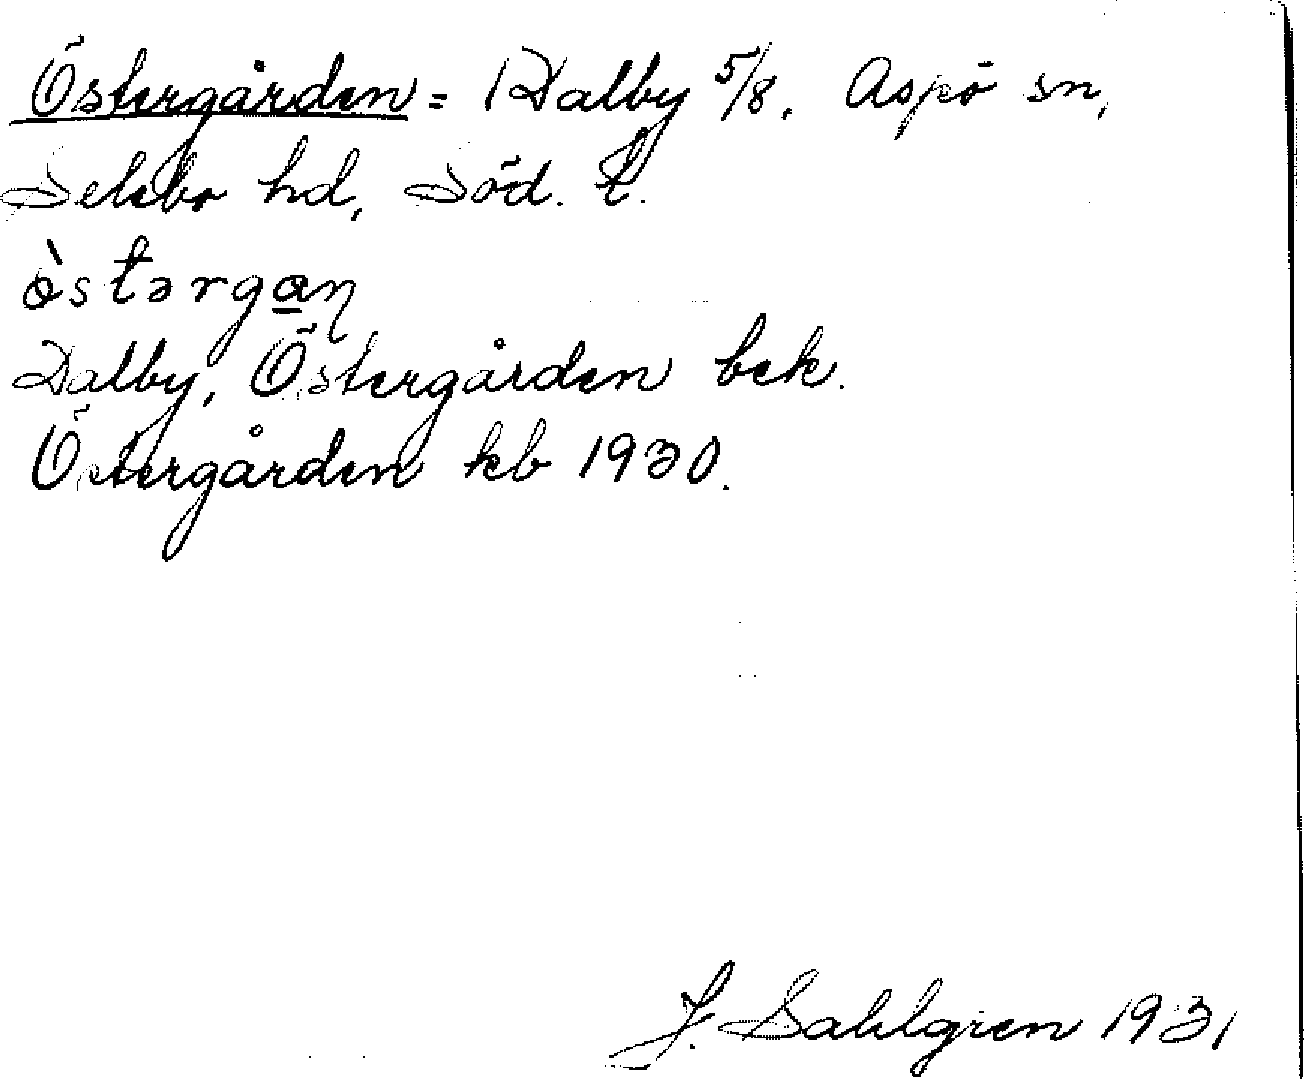 Östergården = Dalby 5/8. Aspö sn,
Selebo hd, Söd. l.
ɵ̀stərgaɳ
Dalby, Östergården bek.
Östergården kb 1930.
J. Sahlgren 1931